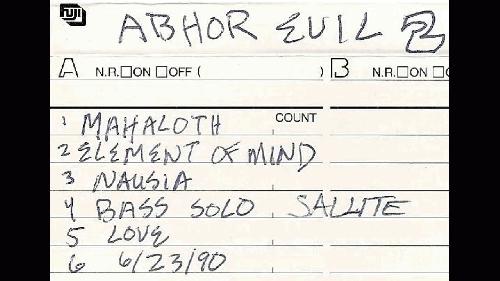 FUJI
ABHOR EVIL
A N.R.□ON □OFF ( ) B N.R.□ON □O
COUNT
1 MAHALOTH
2 ELEMENT OF MIND
3 NAUSIA
4 BASS SOLO SALLITE
5 LOVE
6 6/23/90